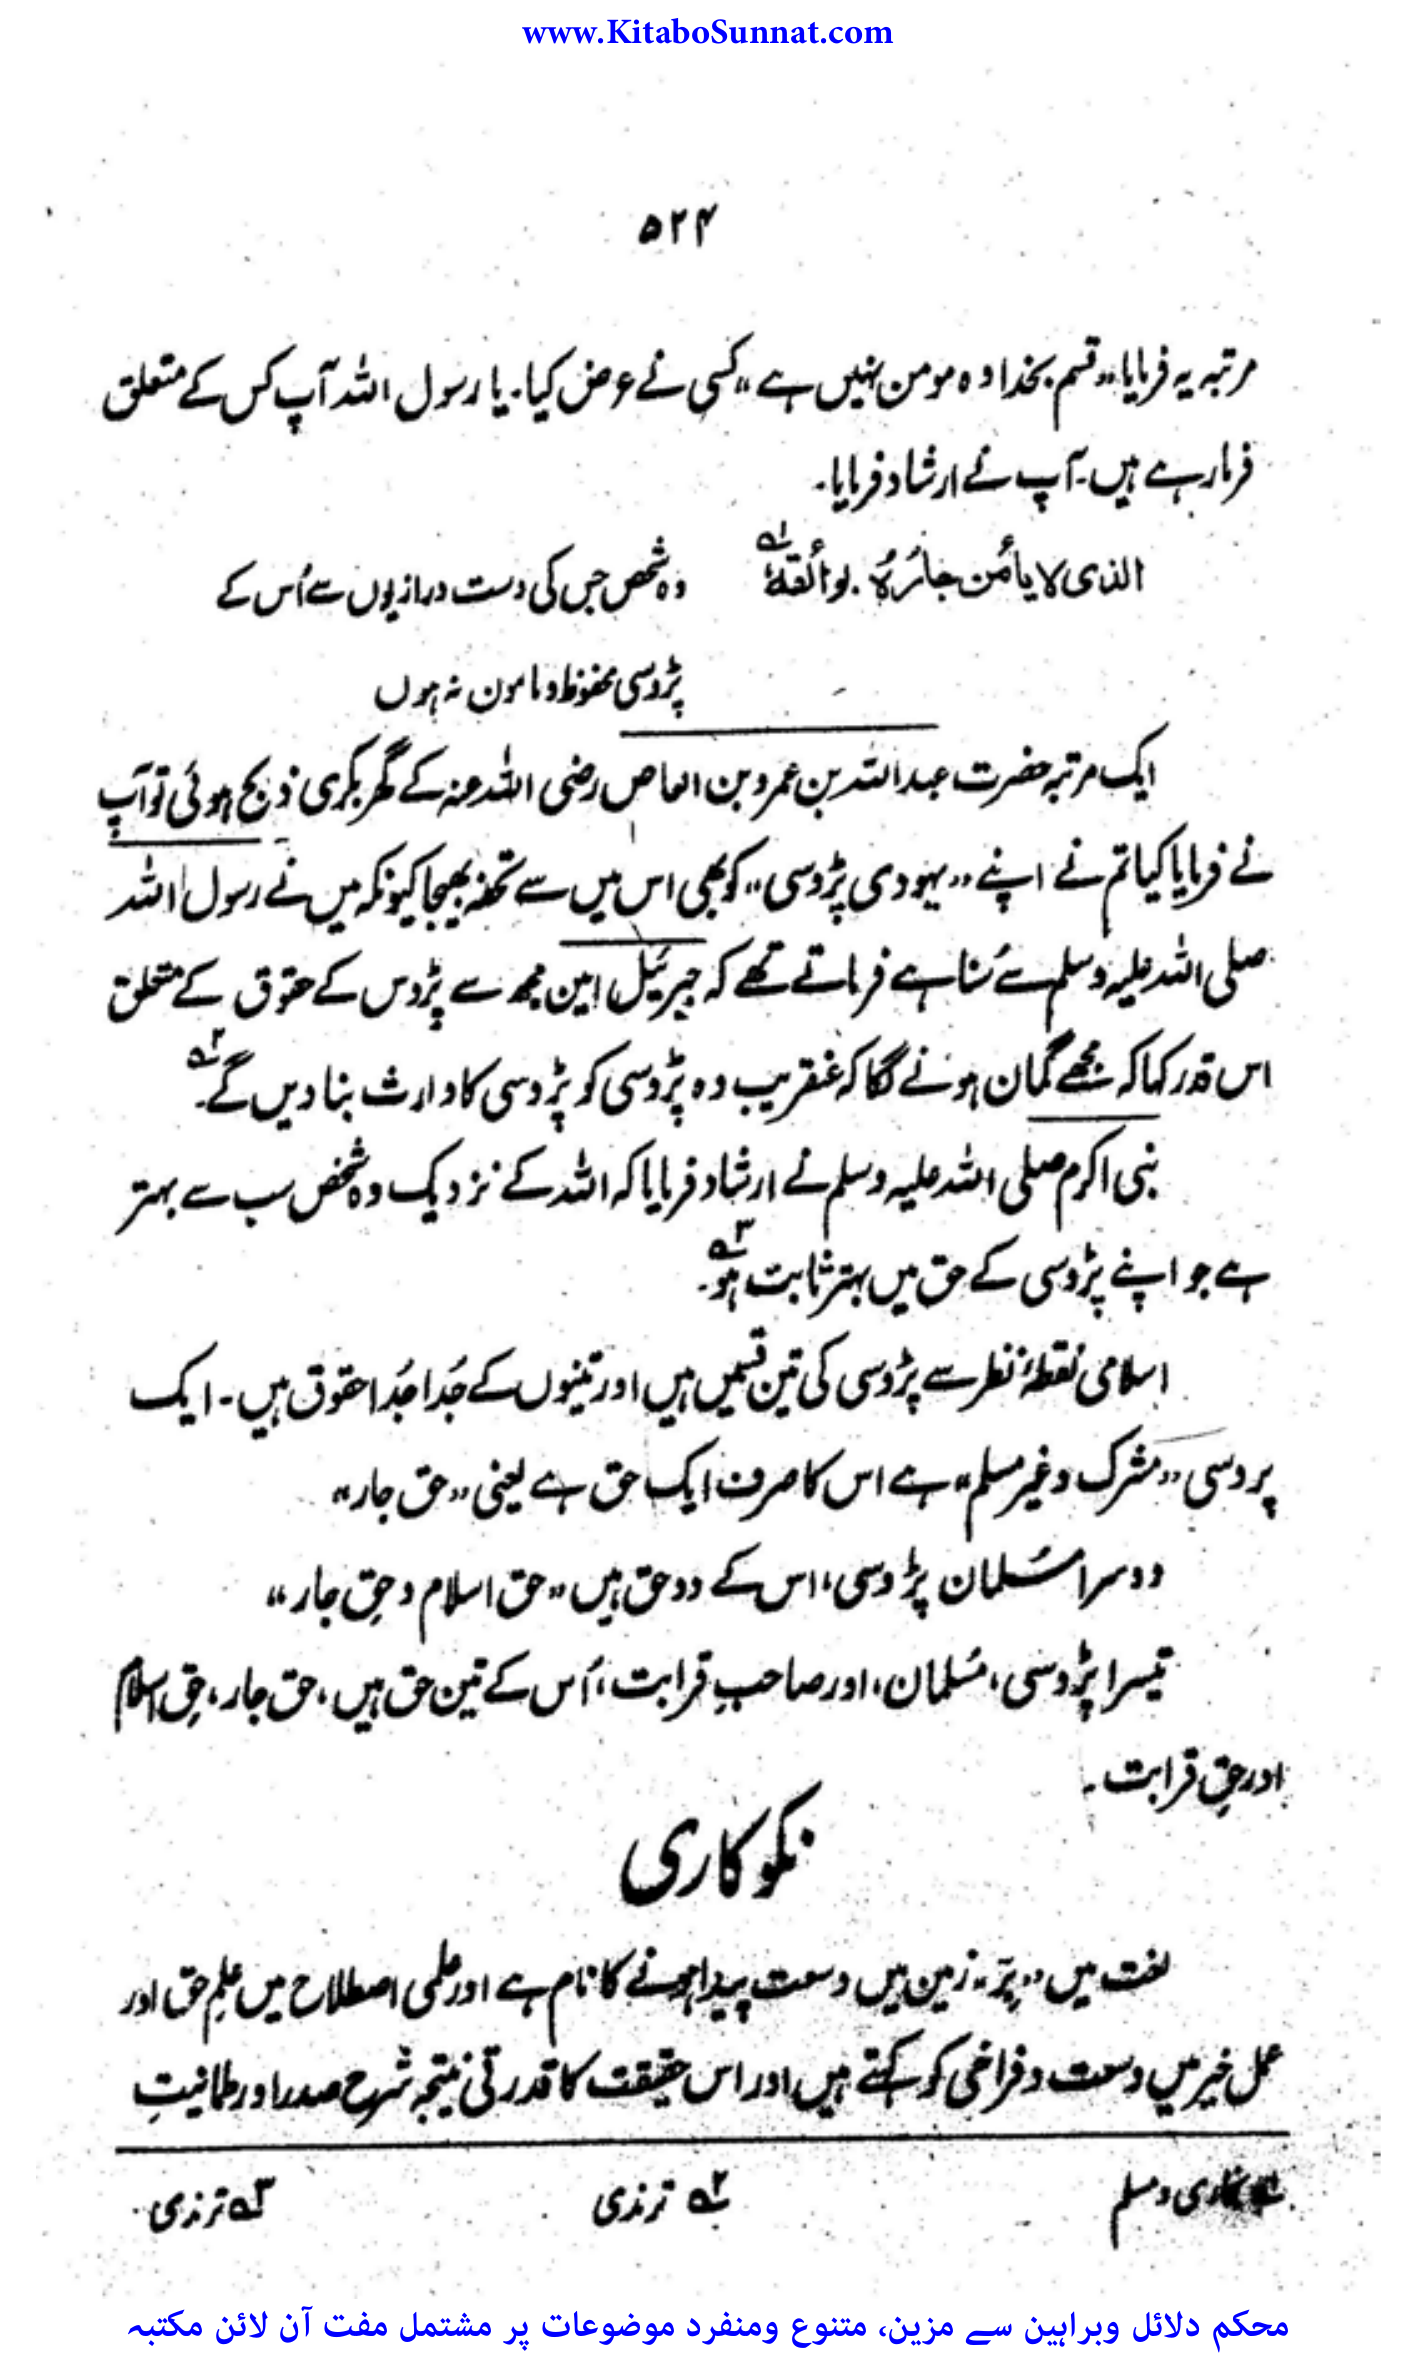 www.KitaboSunnat.com
۵۲۴
مرتبہ یہ فرمایا "قسم بخدا وہ مومن نہیں ہے" کسی نے عرض کیا۔ یا رسول اللہ آپ کس کے متعلق
فرما رہے ہیں۔ آپ نے ارشاد فرمایا۔
الذی لا یأمن جارُہٗ بوائقہٗ ؎۱ وہ شخص جس کی دست درازیوں سے اُس کے
پڑوسی محفوظ و مامون نہ ہوں
ایک مرتبہ حضرت عبداللہ بن عمرو بن العاص رضی اللہ عنہ کے گھر بکری ذبح ہوئی تو آپ
نے فرمایا کیا تم نے اپنے "یہودی پڑوسی" کو بھی اس میں سے تحفہ بھیجا کیونکہ میں نے رسول اللہ
صلی اللہ علیہ وسلم سے سُنا ہے فرماتے تھے کہ جبرئیل امین مجھ سے پڑوس کے حقوق کے متعلق
اس قدر کہا کہ مجھے گمان ہونے لگا کہ عنقریب وہ پڑوسی کو پڑوسی کا وارث بنا دیں گے۔ ؎۲
نبی اکرم صلی اللہ علیہ وسلم نے ارشاد فرمایا کہ اللہ کے نزدیک وہ شخص سب سے بہتر
ہے جو اپنے پڑوسی کے حق میں بہتر ثابت ہو۔ ؎۳
اسلامی نقطۂ نظر سے پڑوسی کی تین قسمیں ہیں اور تینوں کے جُدا جُدا حقوق ہیں۔ ایک
پروسی "مشرک و غیر مسلم" ہے اس کا صرف ایک حق ہے یعنی "حق جار"
دوسرا مُسلمان پڑوسی، اس کے دو حق ہیں "حق اسلام و حقِ جار"
تیسرا پڑوسی، مُسلمان، اور صاحبِ قرابت، اُس کے تین حق ہیں، حق جار، حقِ اسلام
اور حقِ قرابت۔
نکوکاری
لغت میں "بِرّ" زمین میں وسعت پیدا ہونے کا نام ہے اور علمی اصطلاح میں علمِ حق اور
عمل خیر میں وسعت و فراخی کو کہتے ہیں اور اس حقیقت کا قدرتی نتیجہ شرح صدر اور طمانیتِ
؎۱ بخاری و مسلم ؎۲ ترمذی ؎۳ ترمذی
محکم دلائل وبراہین سے مزین، متنوع ومنفرد موضوعات پر مشتمل مفت آن لائن مکتبہ